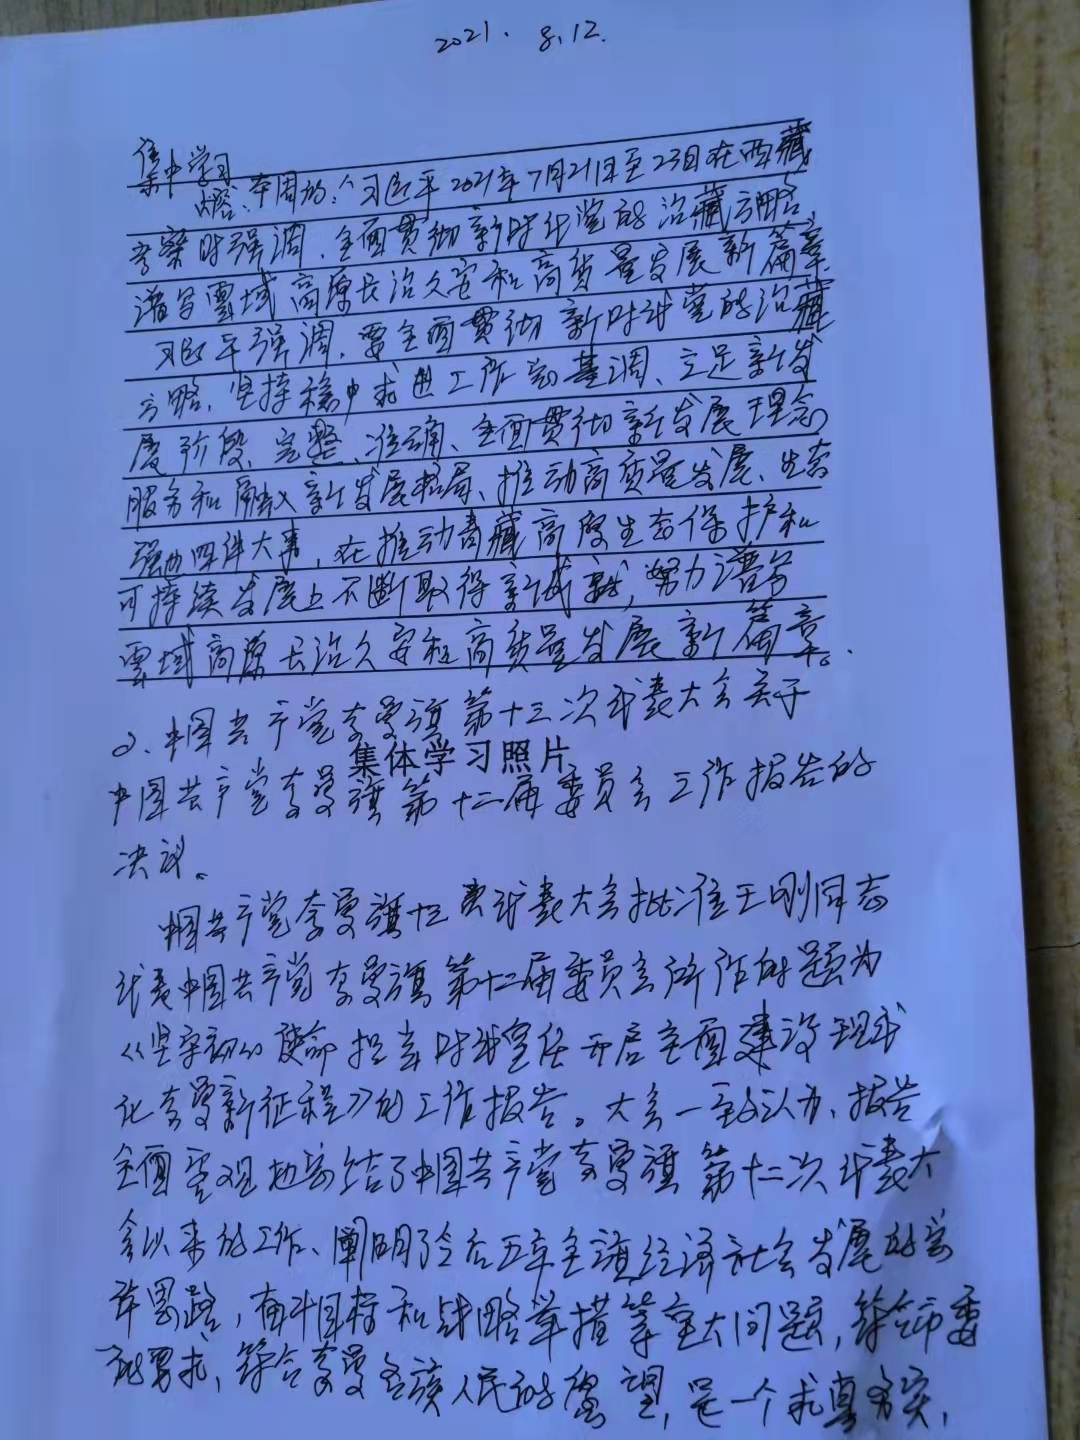 2021. 8.12.
集中学习
内容:本周的:1习近平2021年7月21日至23日在西藏
考察时强调,全面贯彻新时代党的治藏方略
谱写雪域高原长治久安和高质量发展新篇章
习近平强调,要全面贯彻新时代党的治藏
方略,坚持稳中求进工作总基调、立足新发
展阶段、完整、准确、全面贯彻新发展理念
服务和融入新发展格局、推动高质量发展、生态
强边四件大事,在推动青藏高原生态保护和
可持续发展上不断取得新成就,努力谱写
雪域高原长治久安和高质量发展新篇章。
2、中国共产党奈曼旗第十三次代表大会关于
集体学习照片
中国共产党奈曼旗第十二届委员会工作报告的
决议。
中国共产党奈曼旗十三次代表大会批准王刚同志
代表中国共产党奈曼旗第十二届委员会所作的题为
《坚守初心使命担当时代责任开启全面建设现代
化奈曼新征程》的工作报告。大会一致认为,报告
全面客观地总结了中国共产党奈曼旗第十二次代表大
会以来的工作、阐明了今后五年全旗经济社会发展的总
体思路,奋斗目标和战略举措等重大问题,符合市委
的要求,符合奈曼各族人民的愿望,是一个求真务实,